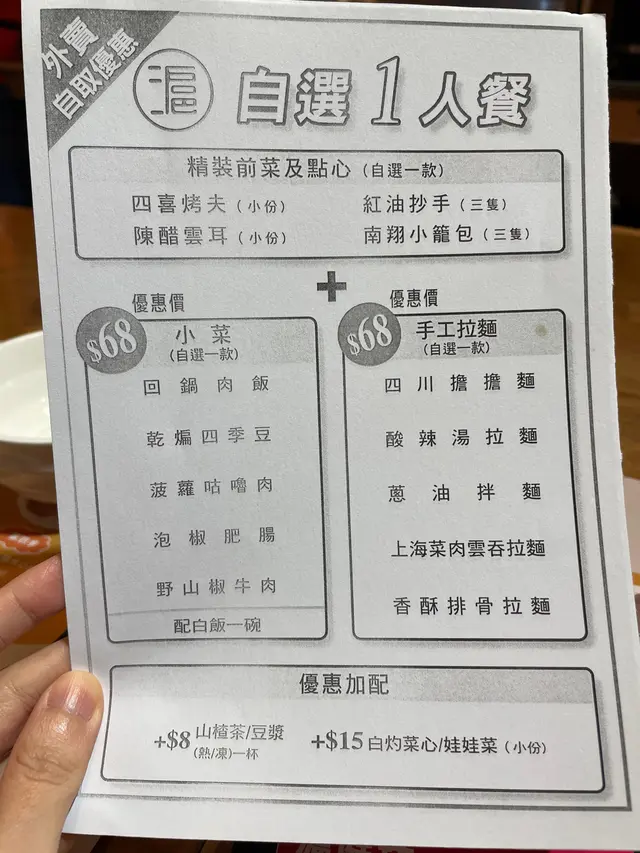 外賣
自取優惠
滬
自選1人餐
精裝前菜及點心(自選一款)
四喜烤夫(小份) 紅油抄手(三隻)
陳醋雲耳(小份) 南翔小籠包(三隻)
+
優惠價
$68
小菜
(自選一款)
回鍋肉飯
乾煸四季豆
菠蘿咕嚕肉
泡椒肥腸
野山椒牛肉
配白飯一碗
優惠價
$68
手工拉麵
(自選一款)
四川擔擔麵
酸辣湯拉麵
蔥油拌麵
上海菜肉雲吞拉麵
香酥排骨拉麵
優惠加配
+$8 山楂茶/豆漿
(熱/凍)一杯
+$15 白灼菜心/娃娃菜(小份)